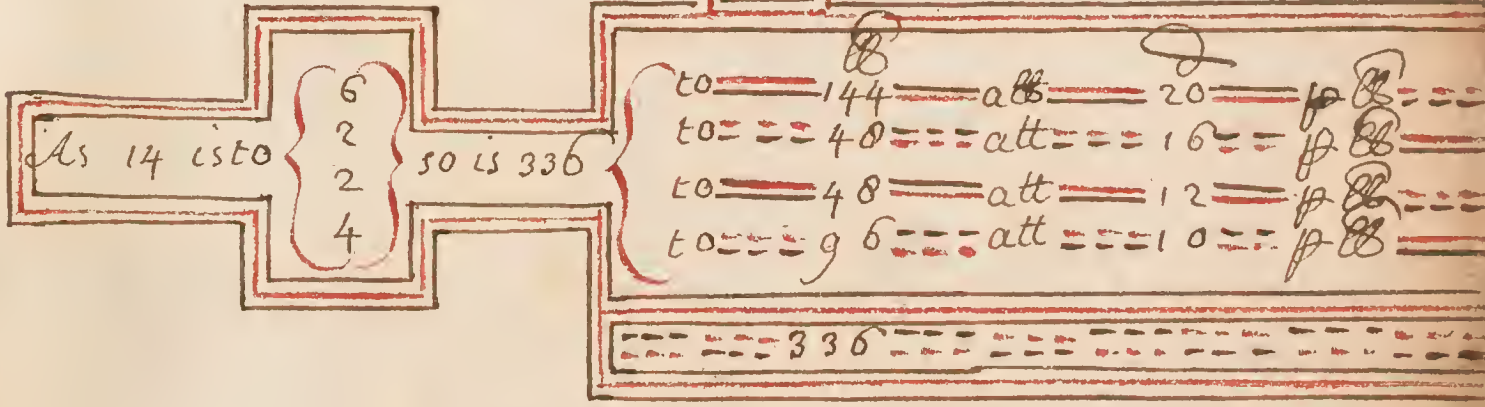 lb d
As 14 is to 6 2 2 4 so is 336
to 144 att 20 p lb
to 48 att 16 p lb
to 48 att 12 p lb
to 96 att 10 p lb
336